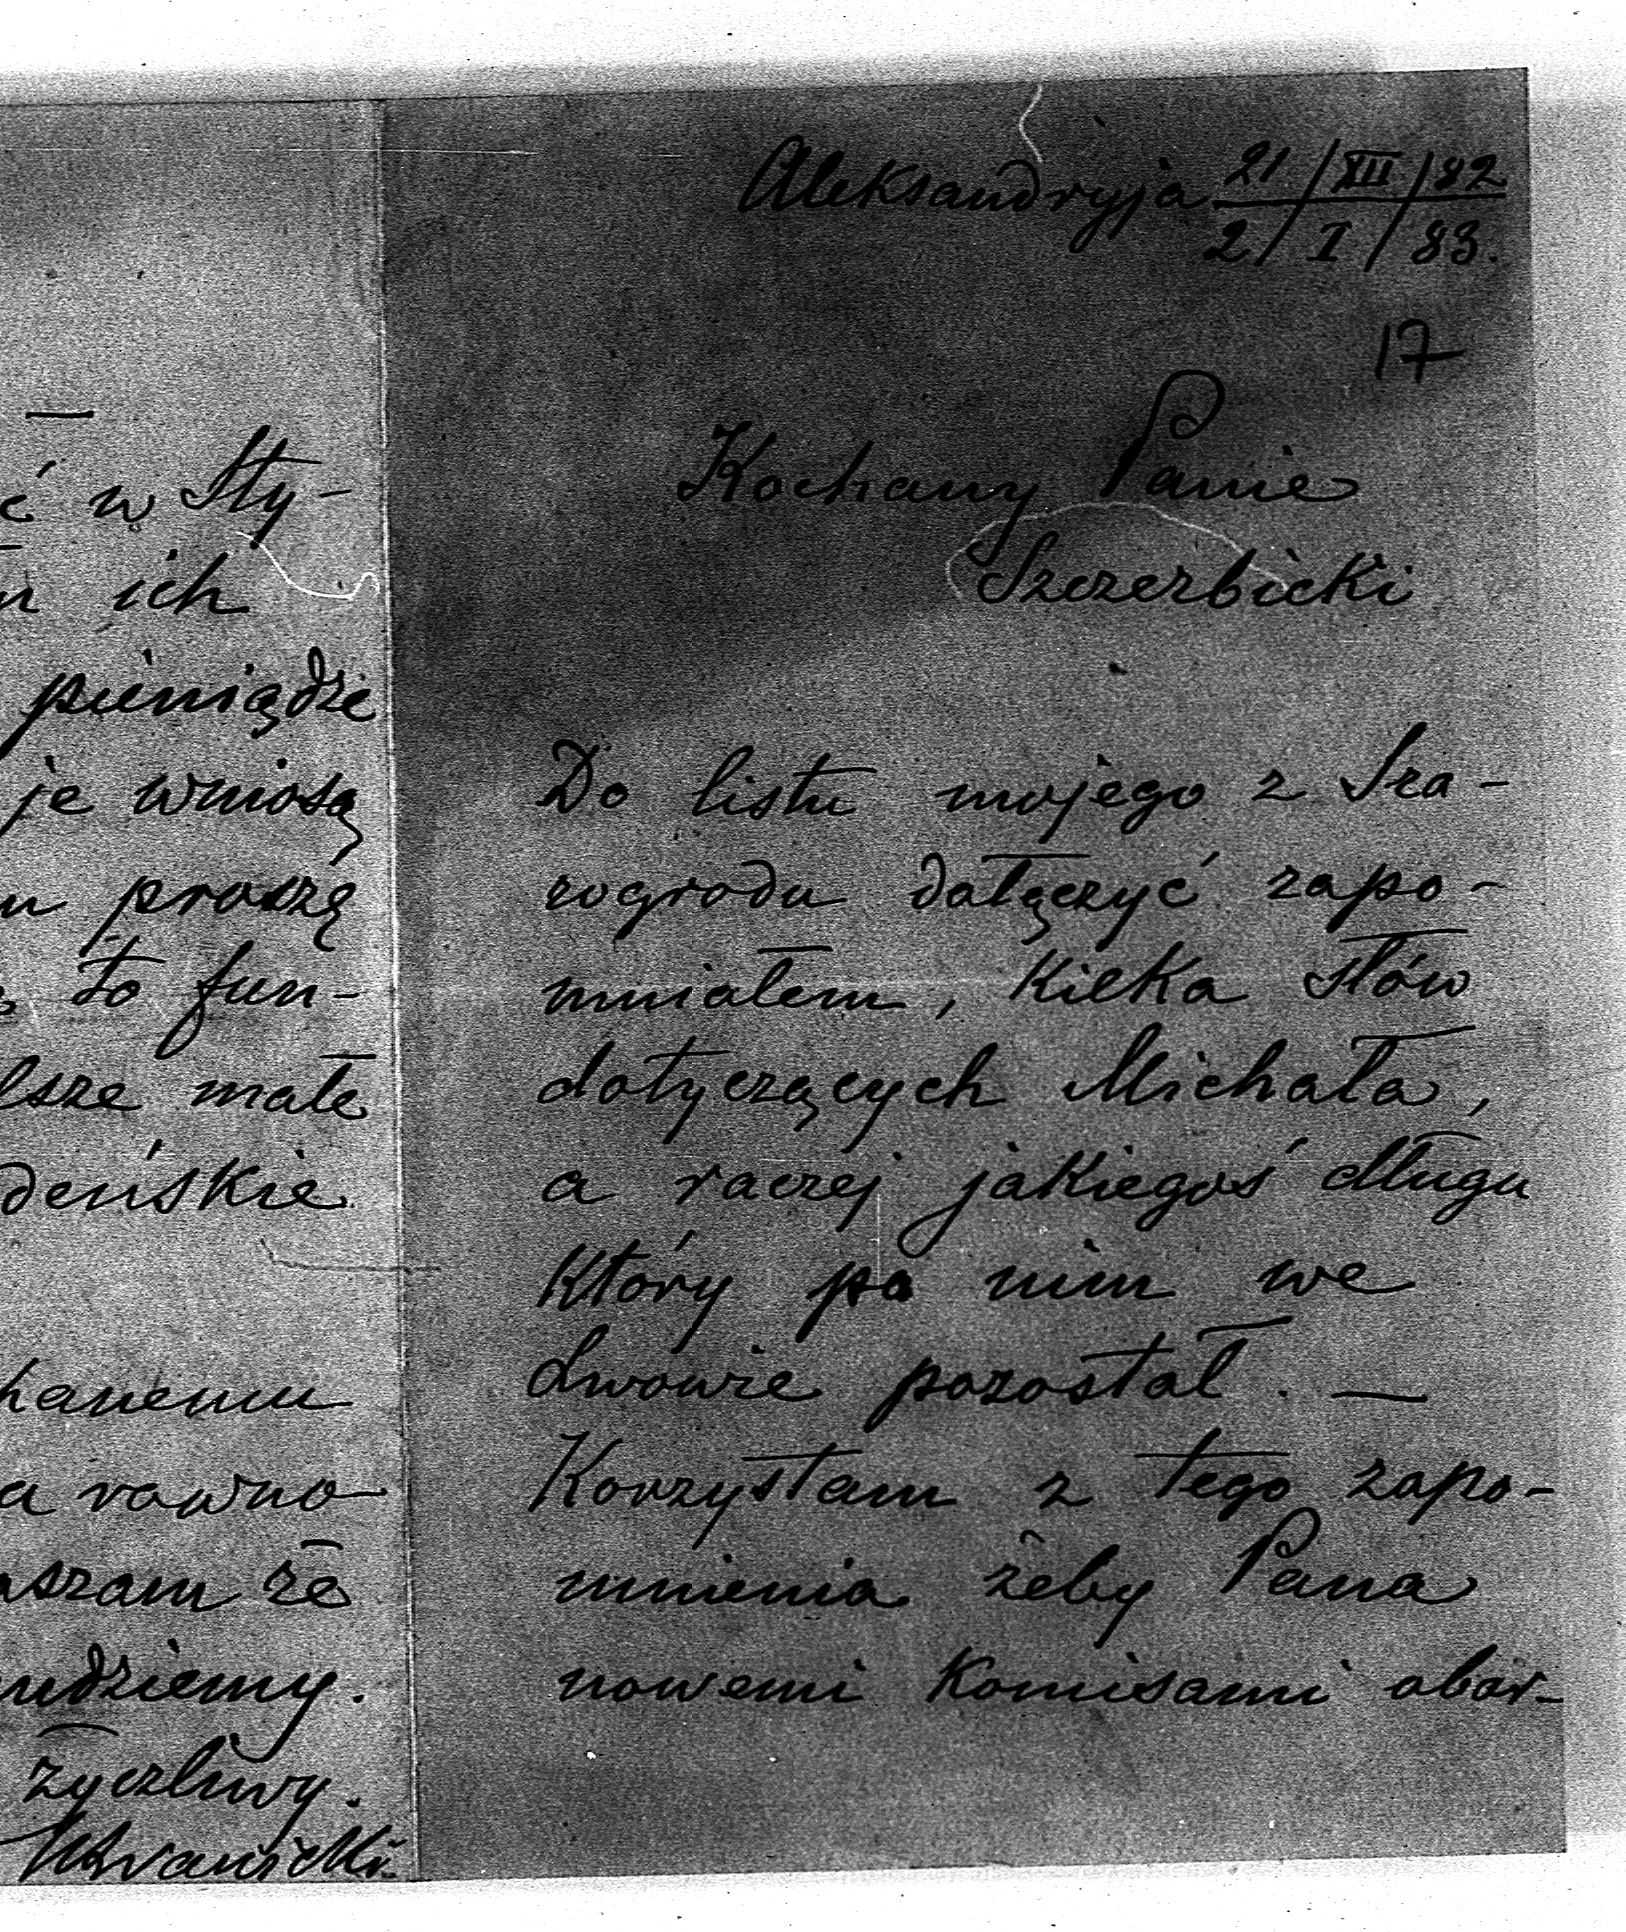 ć w Sty-
ich
pieniądze
je wniosą
proszę
to fun-
lsze małe
deńskie
hanemu
a rowno
szam że
udziemy.
życzliwy.
WBranicki.
Aleksandryja 21/XII./82
2/I/83.
17
Kochany Panie
Szczerbicki
Do listu mojego z Sza-
rogrodu dołączyć zapo-
mniałem, kilka słów
dotyczących Michała,
a raczej jakiegoś długu
Który po nim we
Lwowie pozostał. —
Korzystam z tego zapo-
mnienia żeby Pana
nowemi Komisami obar-